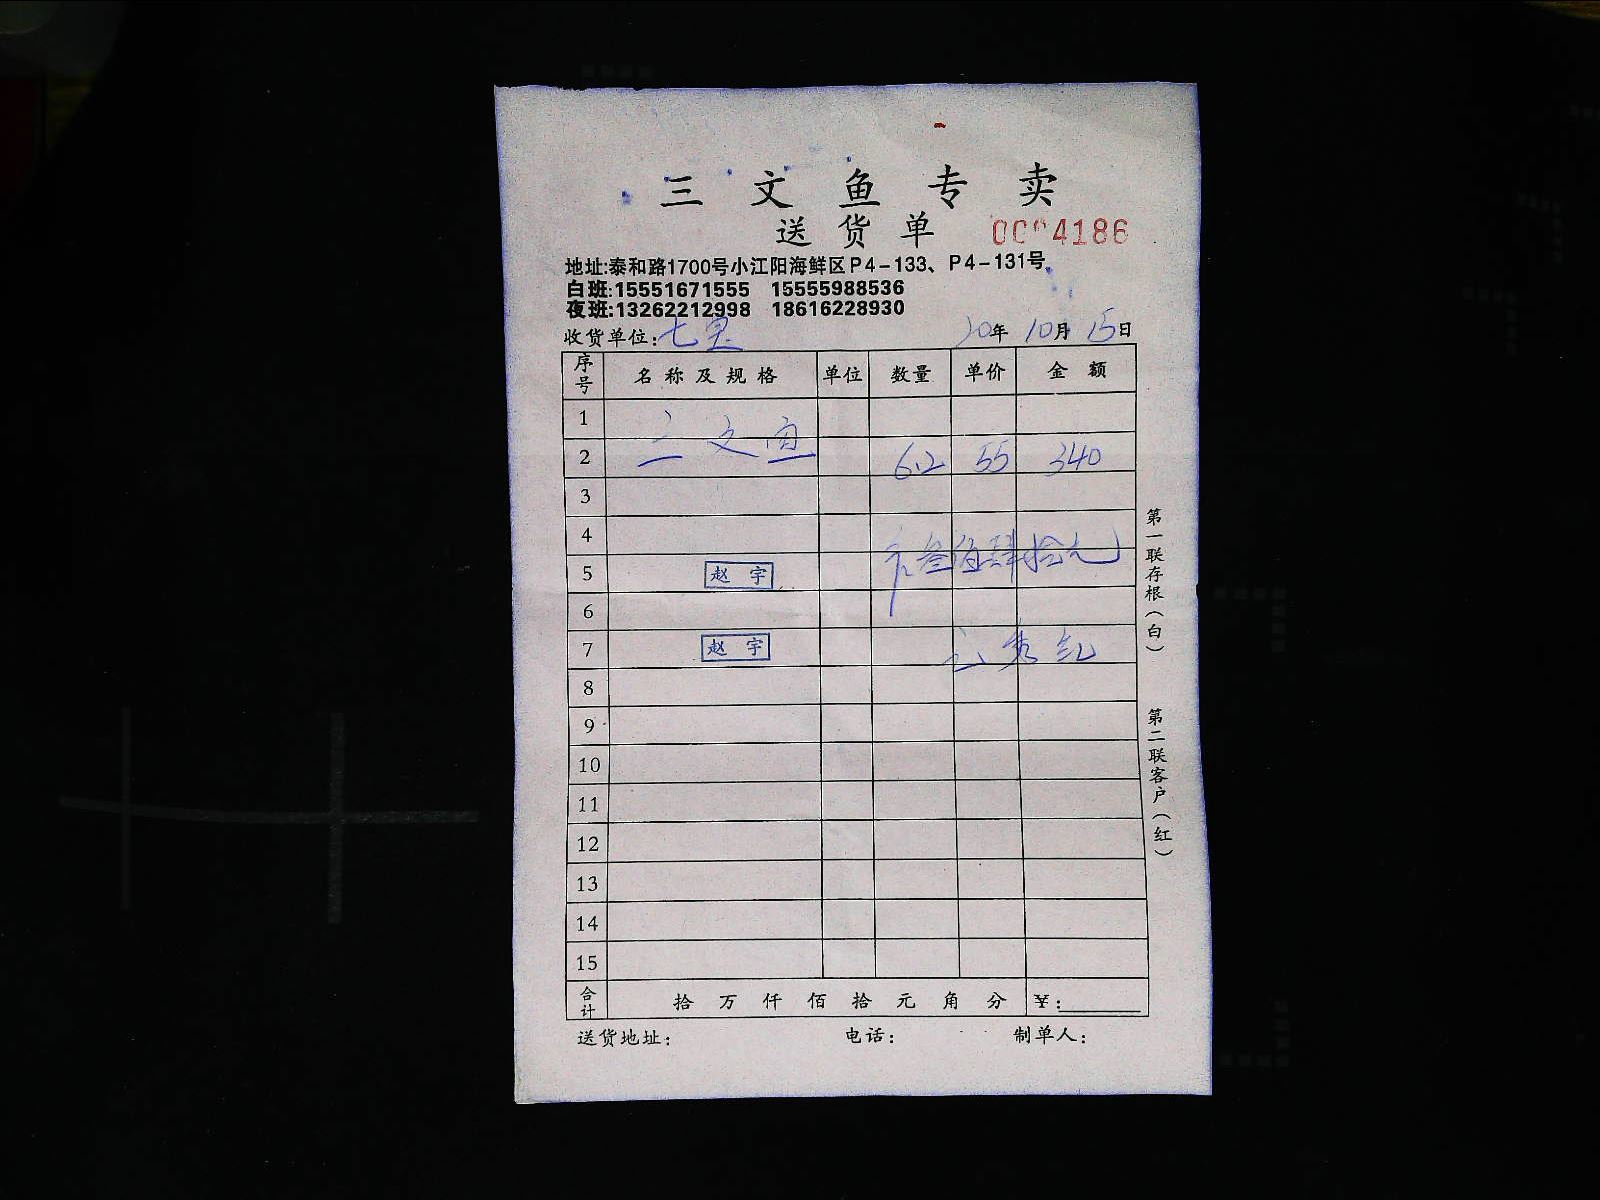 三文鱼专卖
送货单 4186
地址:泰和路1700号小江阳海鲜区P4-133、P4-131号
白班:15551671555 15555988536
夜班:13262212998 18616228930
收货单位:七宝 20年10月15日
序号 名称及规格 单位 数量 单价 金额
1
三文鱼
2 6.2 55 340
3
4
叁佰肆拾元
5 赵宇
6
7 赵宇 秀红
8
9
10
11
12
13
14
15
合计 拾万仟佰拾元角分 ¥:
送货地址: 电话: 制单人:
第一联存根(白)
第二联客户(红)